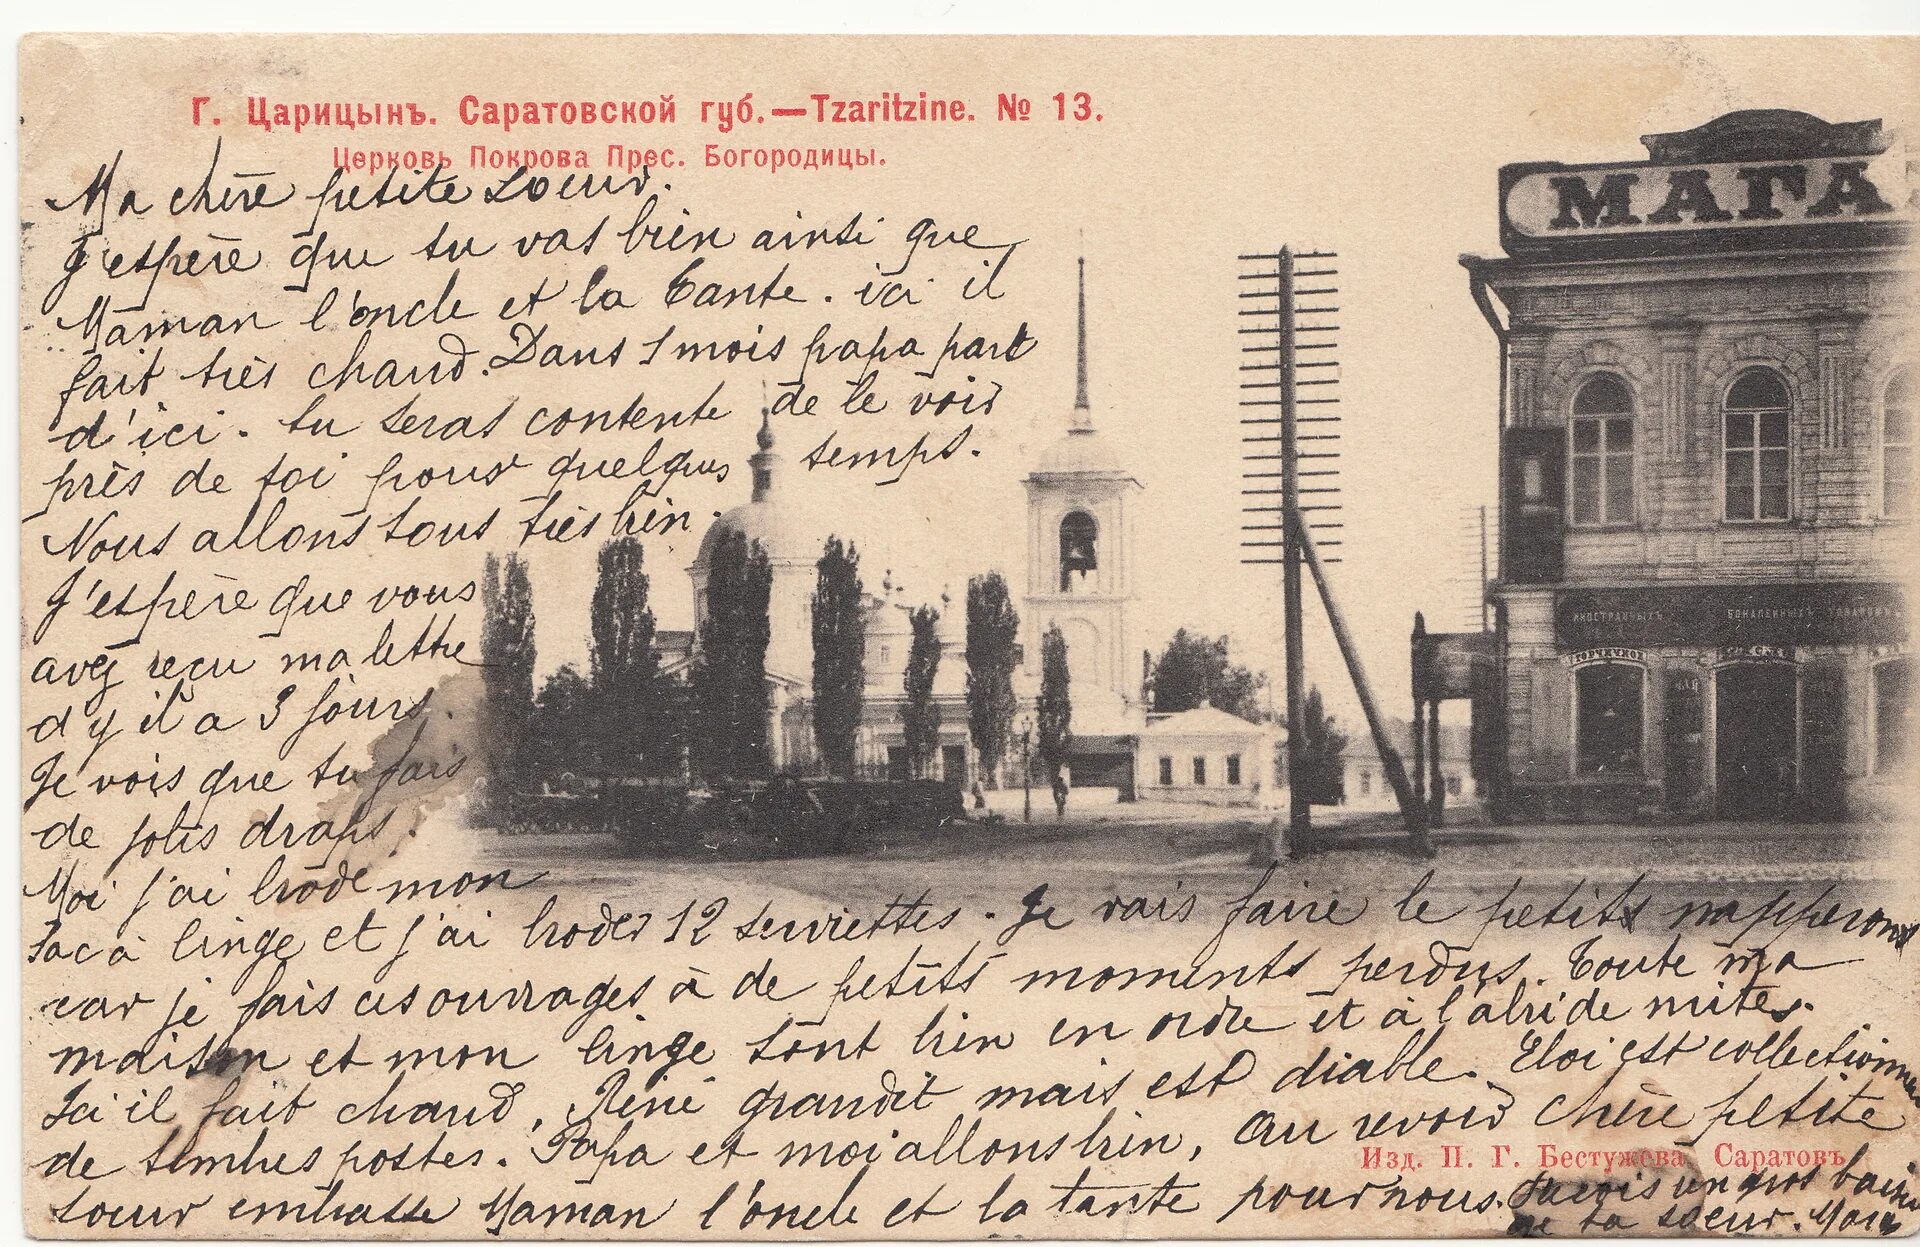 Г. Царицынъ. Саратовской губ.—Tzaritzine. № 13.
Церковь Покрова Прес. Богородицы.
МАГА
Ma chère petite soeur.
J'espère que tu vas bien ainsi que
Maman l'oncle et la tante. ici il
fait très chaud. Dans 1 mois papa part
d'ici. tu seras contente de le voir
près de toi pour quelques temps.
Nous allons tous très bien.
J'espère que vous
avez reçu ma lettre
d'y il a 3 jours.
Je vois que tu fais
de jolis draps.
Moi j'ai brodé mon
sac à linge et j'ai broder 12 serviettes. Je vais faire le petits napperons
car je fais ces ouvrages à de petits moments perdus. Toute ma
maison et mon linge sont bien en ordre et à l'abri de mites.
Ici il fait chaud. Réné grandit mais est diable. Eloi est collectionneur
de timbres postes. Papa et moi allons bien, au revoir chère petite
soeur embasse Maman l'oncle et la tante pour nous. Reçois un gros baiser
de ta soeur.
иностранныхъ бакалейныхъ
Изд. П. Г. Бестужева Саратовъ